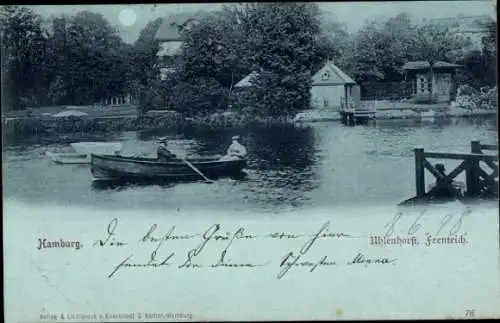 8.6.98
Hamburg. Die besten Grüße von hier Uhlenhorst. Feenteich.
sendet dir deine Schwester Minna.
Verlag & Lichtdruck v. Knackstedt & Näther, Hamburg. 76